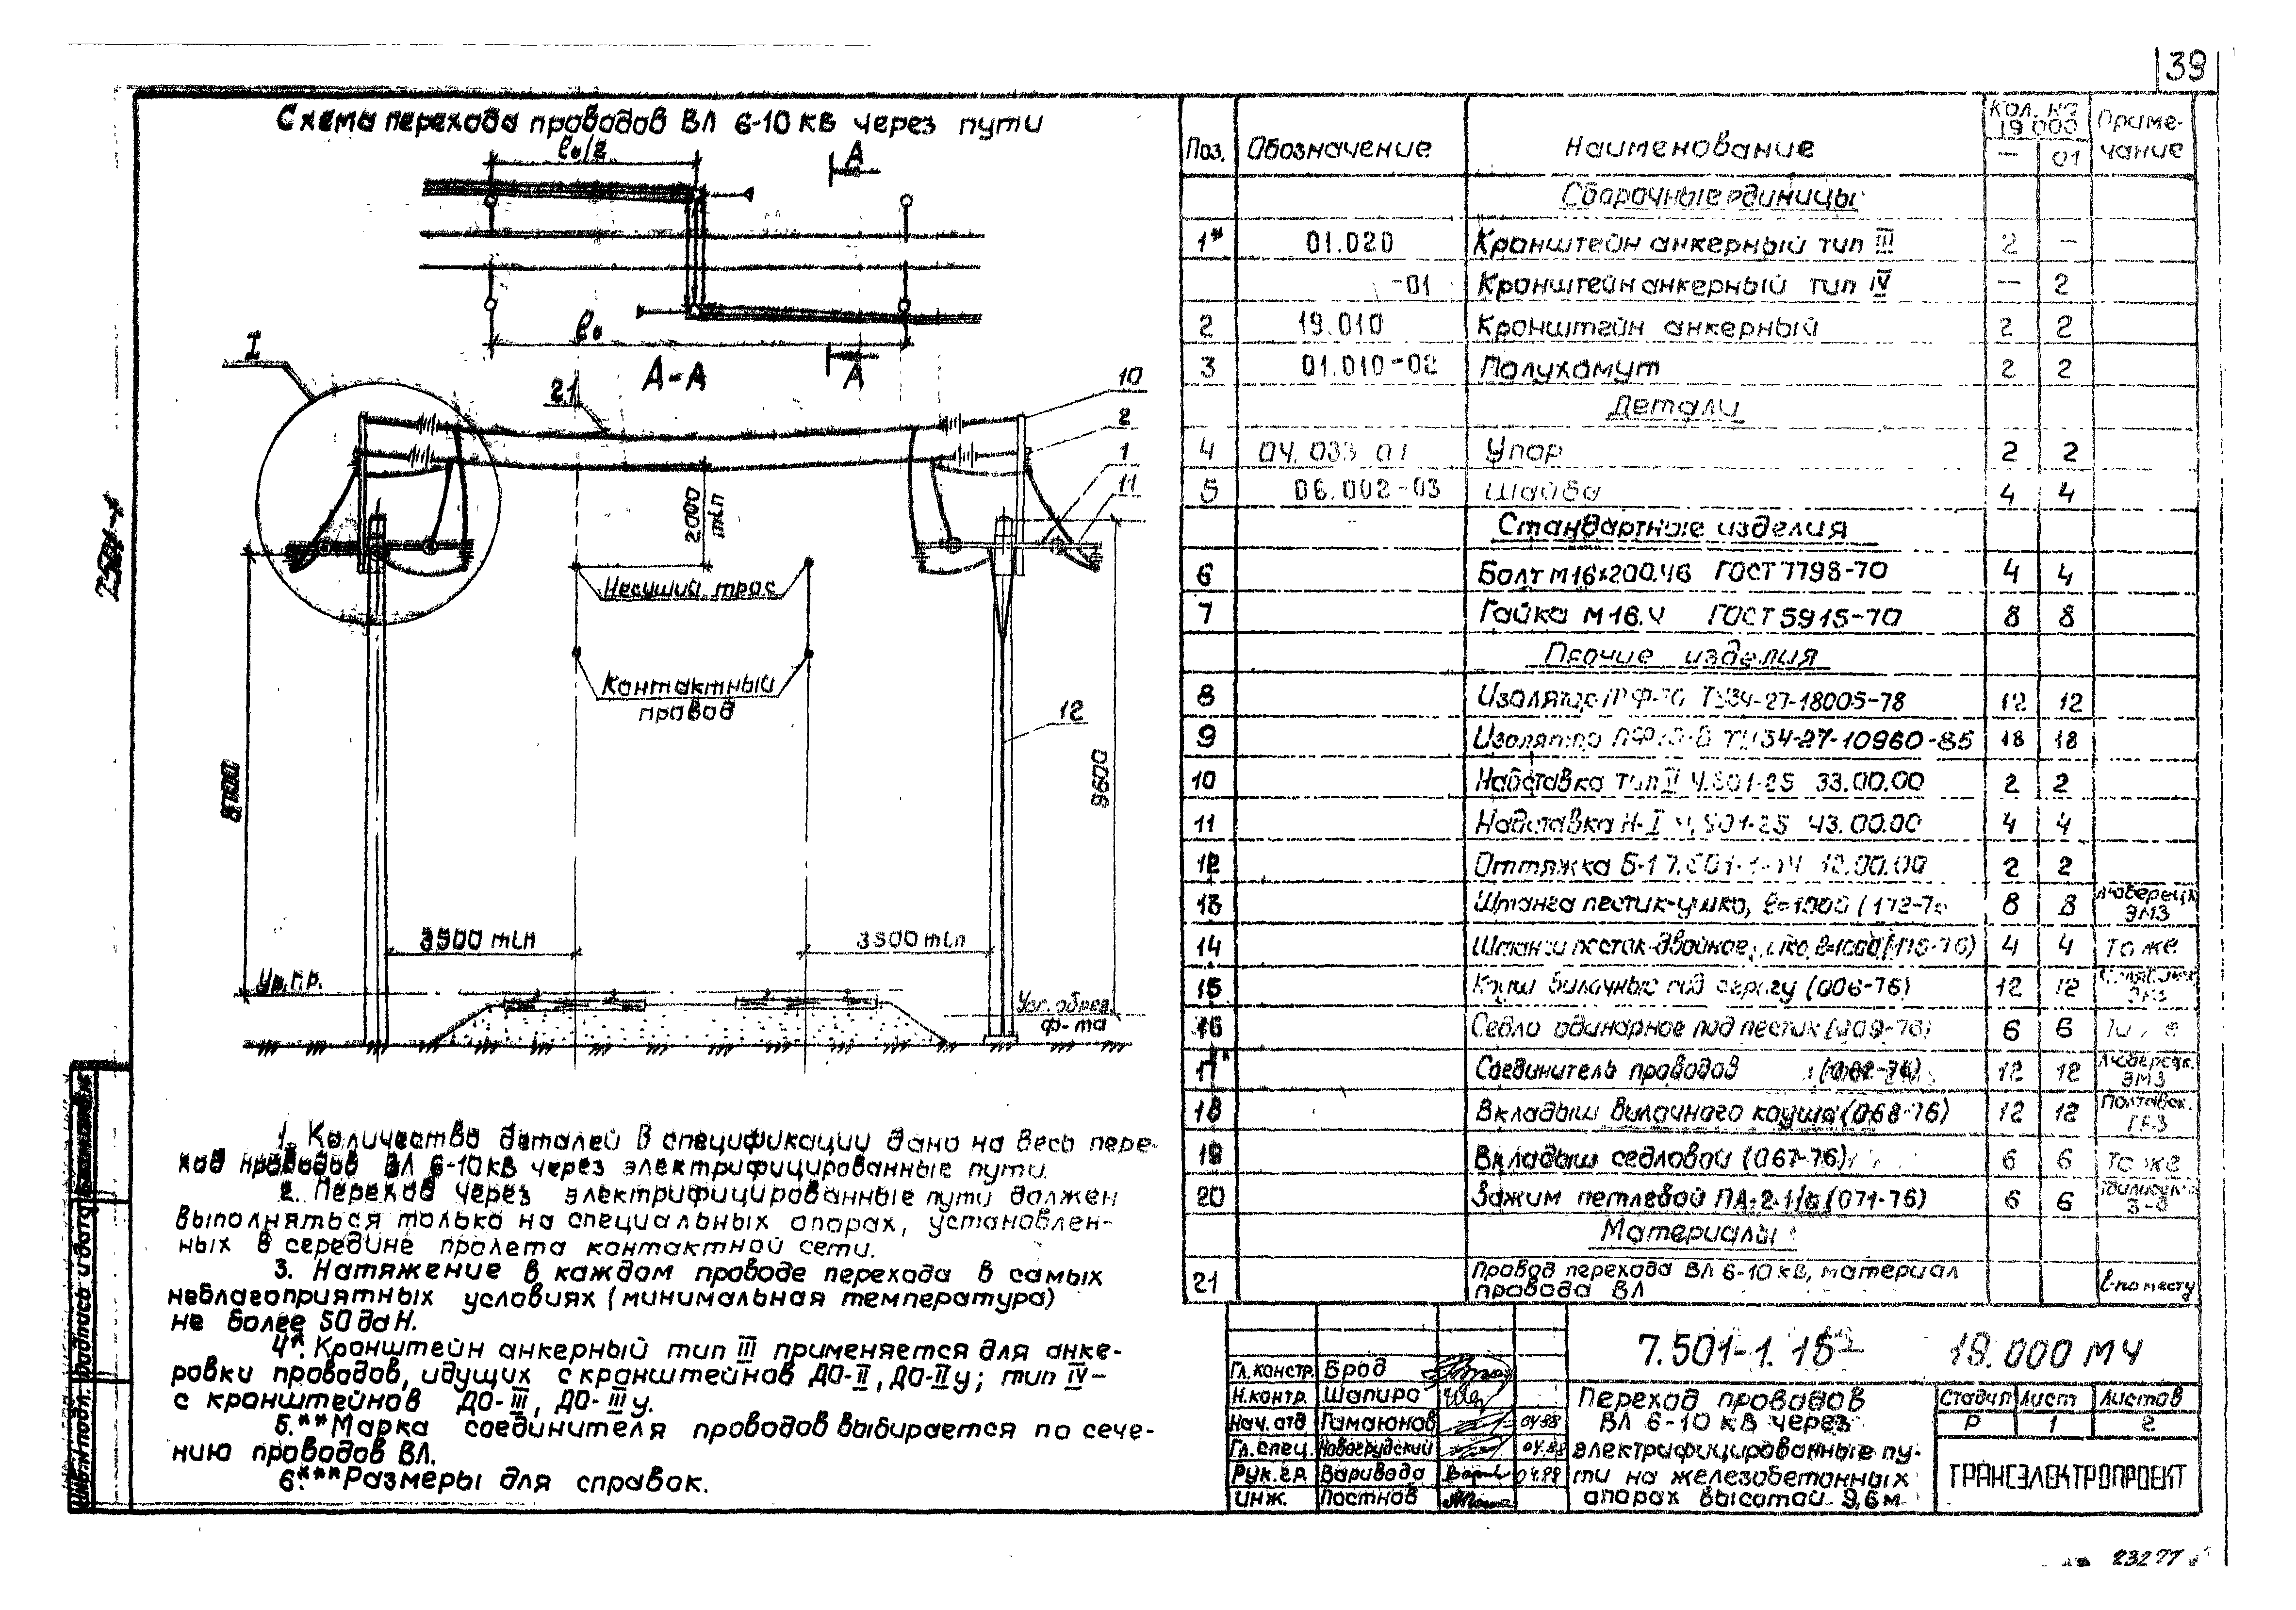 39
Схема перехода проводов ВЛ 6-10 кВ через пути
А
А
I
А-А
21
10
2
1
11
2000
min
Несущий трос
Контактный
провод
12
8700
9600
3500 min
3500 min
Ур.г.р.
Усл. обрез.
ф-та
1. Количество деталей в спецификации дано на весь пере-
ход проводов ВЛ 6-10 кВ через электрифицированные пути.
2. Переход через электрифицированные пути должен
выполняться только на специальных опорах, установлен-
ных в середине пролета контактной сети.
3. Натяжение в каждом проводе перехода в самых
неблагоприятных условиях (минимальная температура)
не более 50 даН.
4*. Кронштейн анкерный тип III применяется для анке-
ровки проводов, идущих с кронштейнов ДО-II, ДО-IIу; тип IV-
с кронштейнов ДО-III, ДО-IIIу.
5.** Марка соединителя проводов выбирается по сече-
нию проводов ВЛ.
6.*** Размеры для справок.
Поз. Обозначение Наименование Кол. на 19.000 Приме-
чание
— 01
Сборочные единицы
1* 01.020 Кронштейн анкерный тип III 2 —
-01 Кронштейн анкерный тип IV — 2
2 19.010 Кронштейн анкерный 2 2
3 01.010-02 Полухомут 2 2
Детали
4 04.033 01 Упор 2 2
5 06.002-03 Шайба 4 4
Стандартные изделия
6 Болт М16х200.46 ГОСТ 7798-70 4 4
7 Гайка М16.4 ГОСТ 5915-70 8 8
Прочие изделия
8 Изолятор ТУ34-27-18005-78 12 12
9 Изолятор ТУ34-27-10960-85 18 18
10 Надставка тип II 4.501-25 33.00.00 2 2
11 Надставка Н-I 4.501-25 43.00.00 4 4
12 Оттяжка Б-1 2 2
13 Штанга пестик-ушко, 8 8 Люберецк.
ЭМЗ
14 4 4 То же
15 Коуш вилочный под (006-76) 12 12
16 Седло одинарное под пестик 6 6
17** Соединитель проводов 12 12 Люберецк.
ЭМЗ
18 Вкладыш вилочного коуша (068-76) 12 12
19 Вкладыш седловой (067-76) 6 6 То же
20 Зажим петлевой (071-76) 6 6
Материалы
21 Провод перехода ВЛ 6-10 кВ, материал
провода ВЛ ℓ-по месту
7.501-1. 19.000 МЧ
Гл. констр. Брод
Н.контр. Шапиро
Нач. отд. Гамаюнов 04.88
Гл. спец. Новогрудский 04.88
Рук. гр. Варивода 04.88
Инж. Постнов
Переход проводов
ВЛ 6-10 кВ через
электрифицированные пу-
ти на железобетонных
опорах высотой 9,6 м
Стадия Лист Листов
Р 1 2
ТРАНСЭЛЕКТРОПРОЕКТ
23277